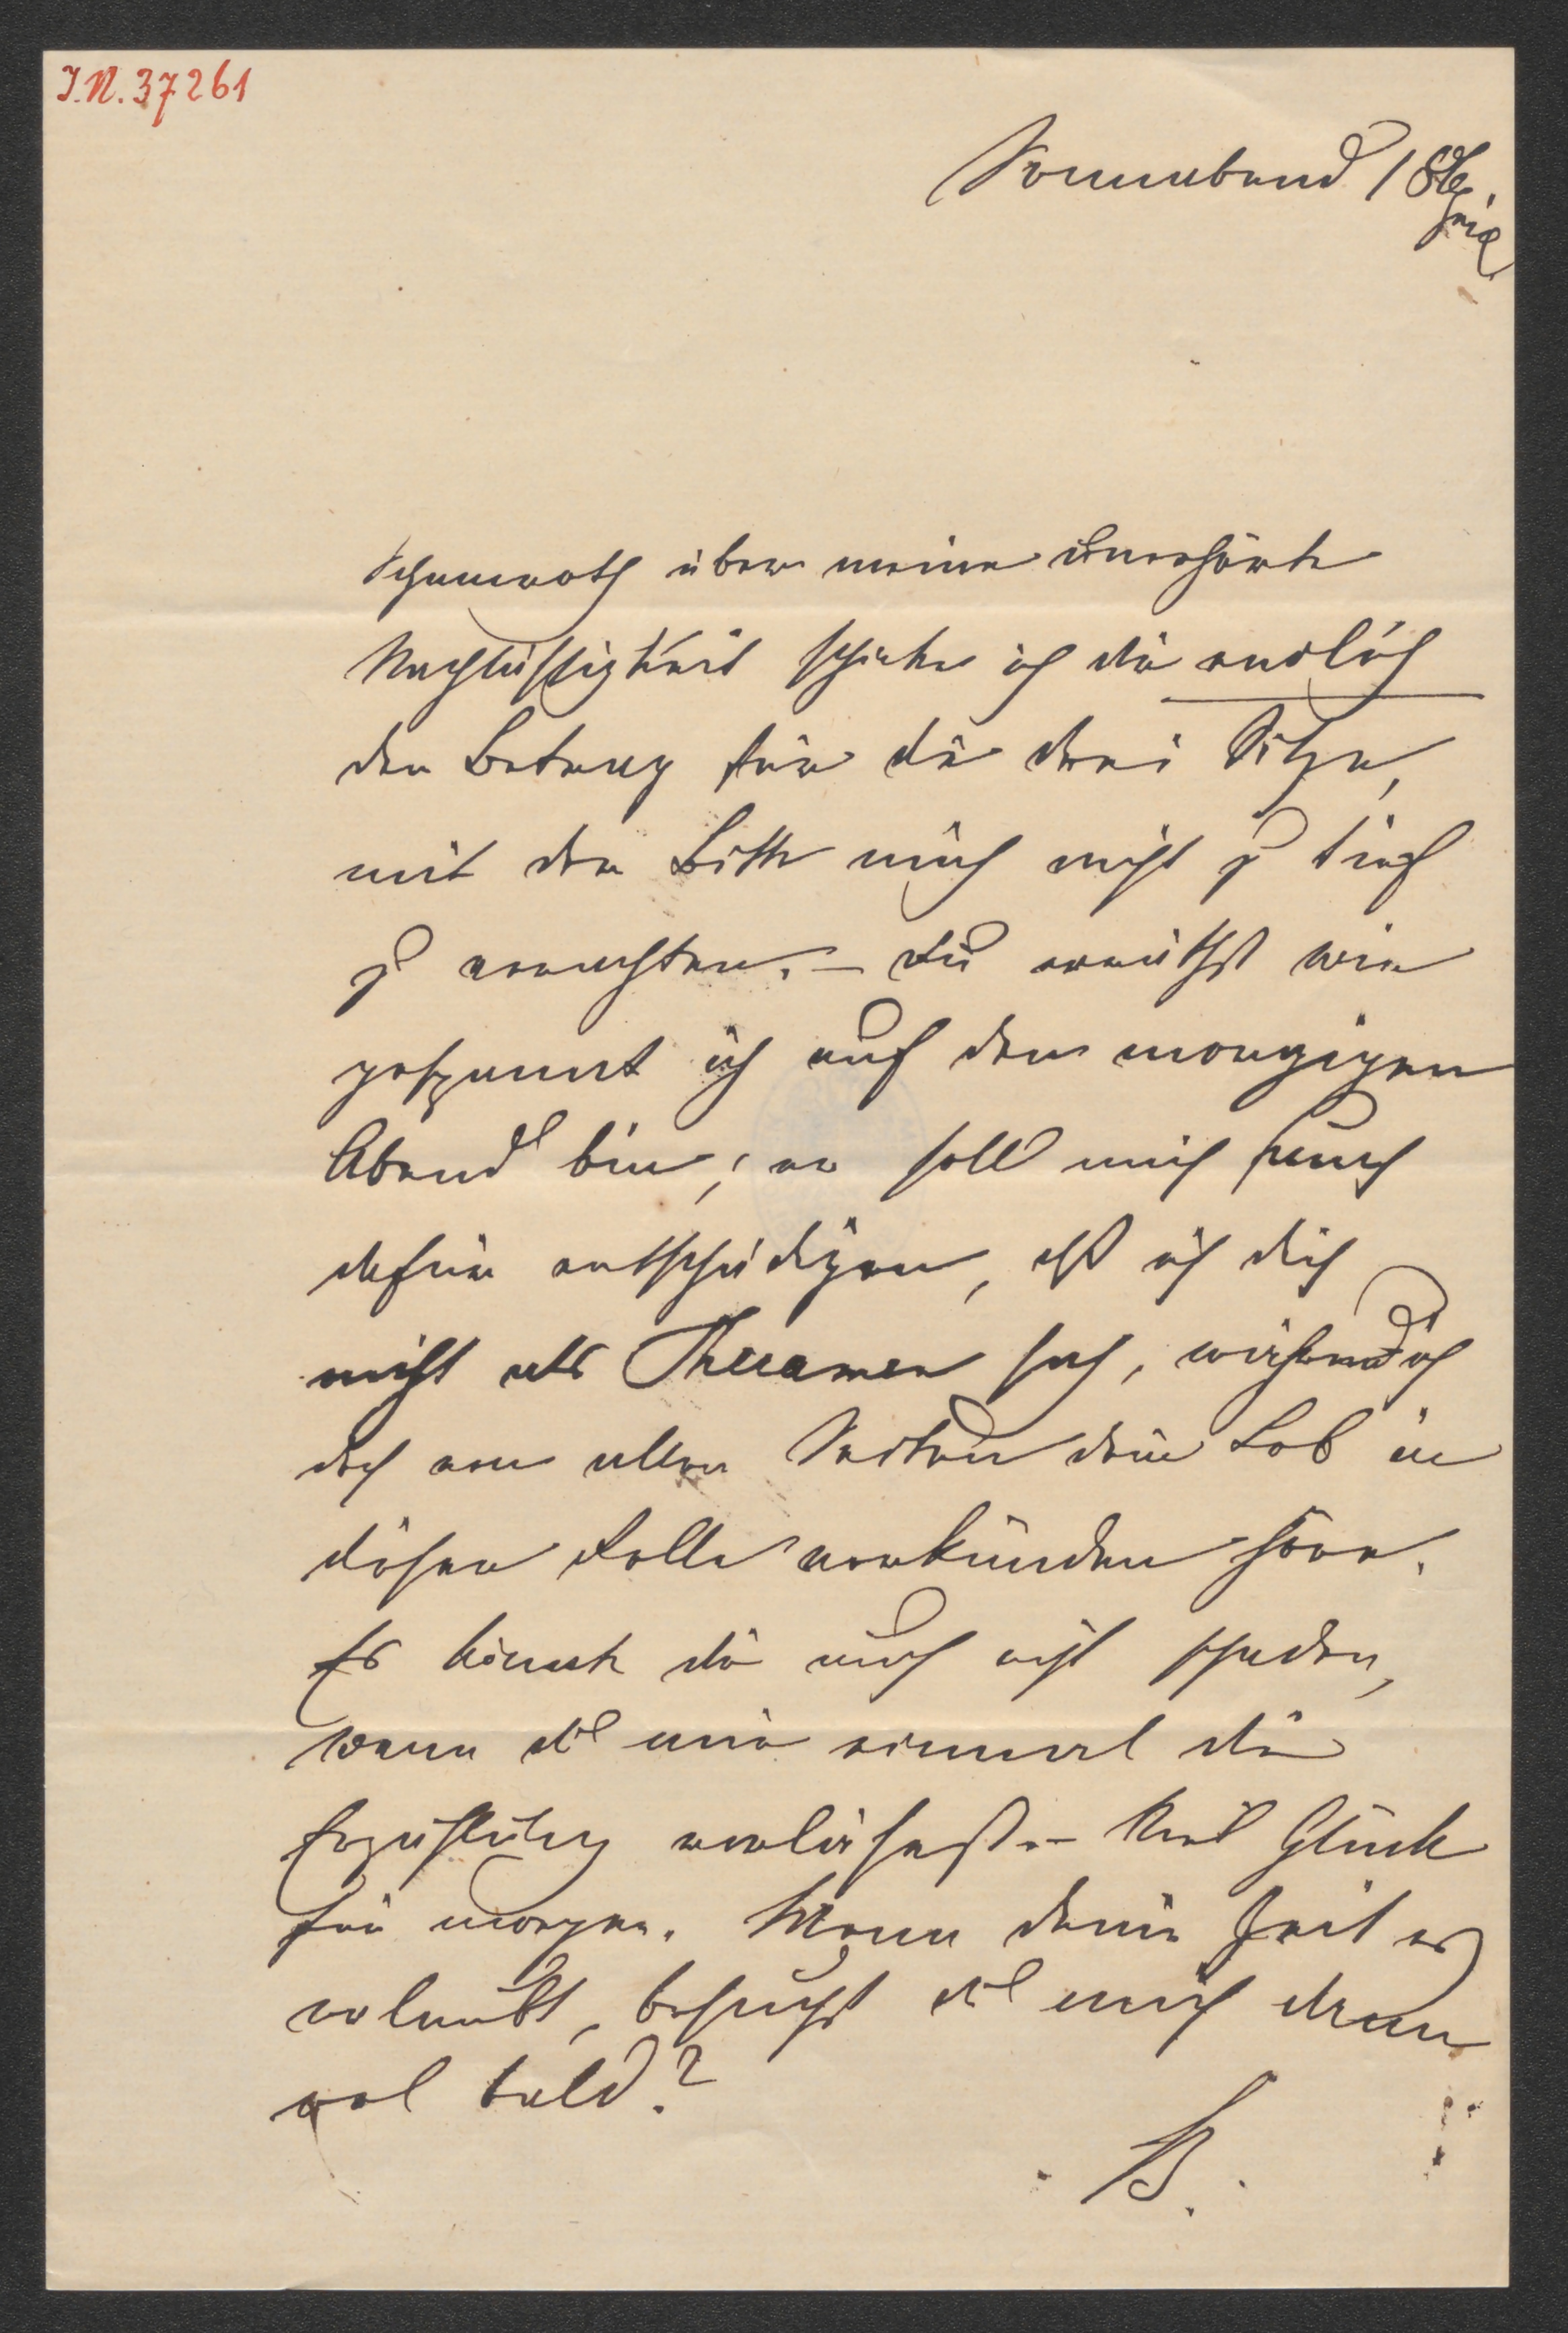 J.N. 37261
Sonnabend 18te
Schamroth über meine unerhörte
Nachlässigkeit schicke ich dir endlich
den Betrag für die drei Sitze,
mit der Bitte mich nicht zu tief
zu verachten. – Du erräthst wie
gespannt ich auf den morgigen
Abend bin; er soll mich auch
dafür entschädigen, daß ich dich
nicht als Theramen sah, während ich
doch von allen Seiten dein Lob in
dieser Rolle verkünden höre.
Es könnte dir auch nicht schaden,
wenn du mir einmal die
Erzählung vorläsest. – Viel Glück
für morgen. Wenn deine Zeit es
erlaubt, besuchst du mich dann
wol bald?
B.